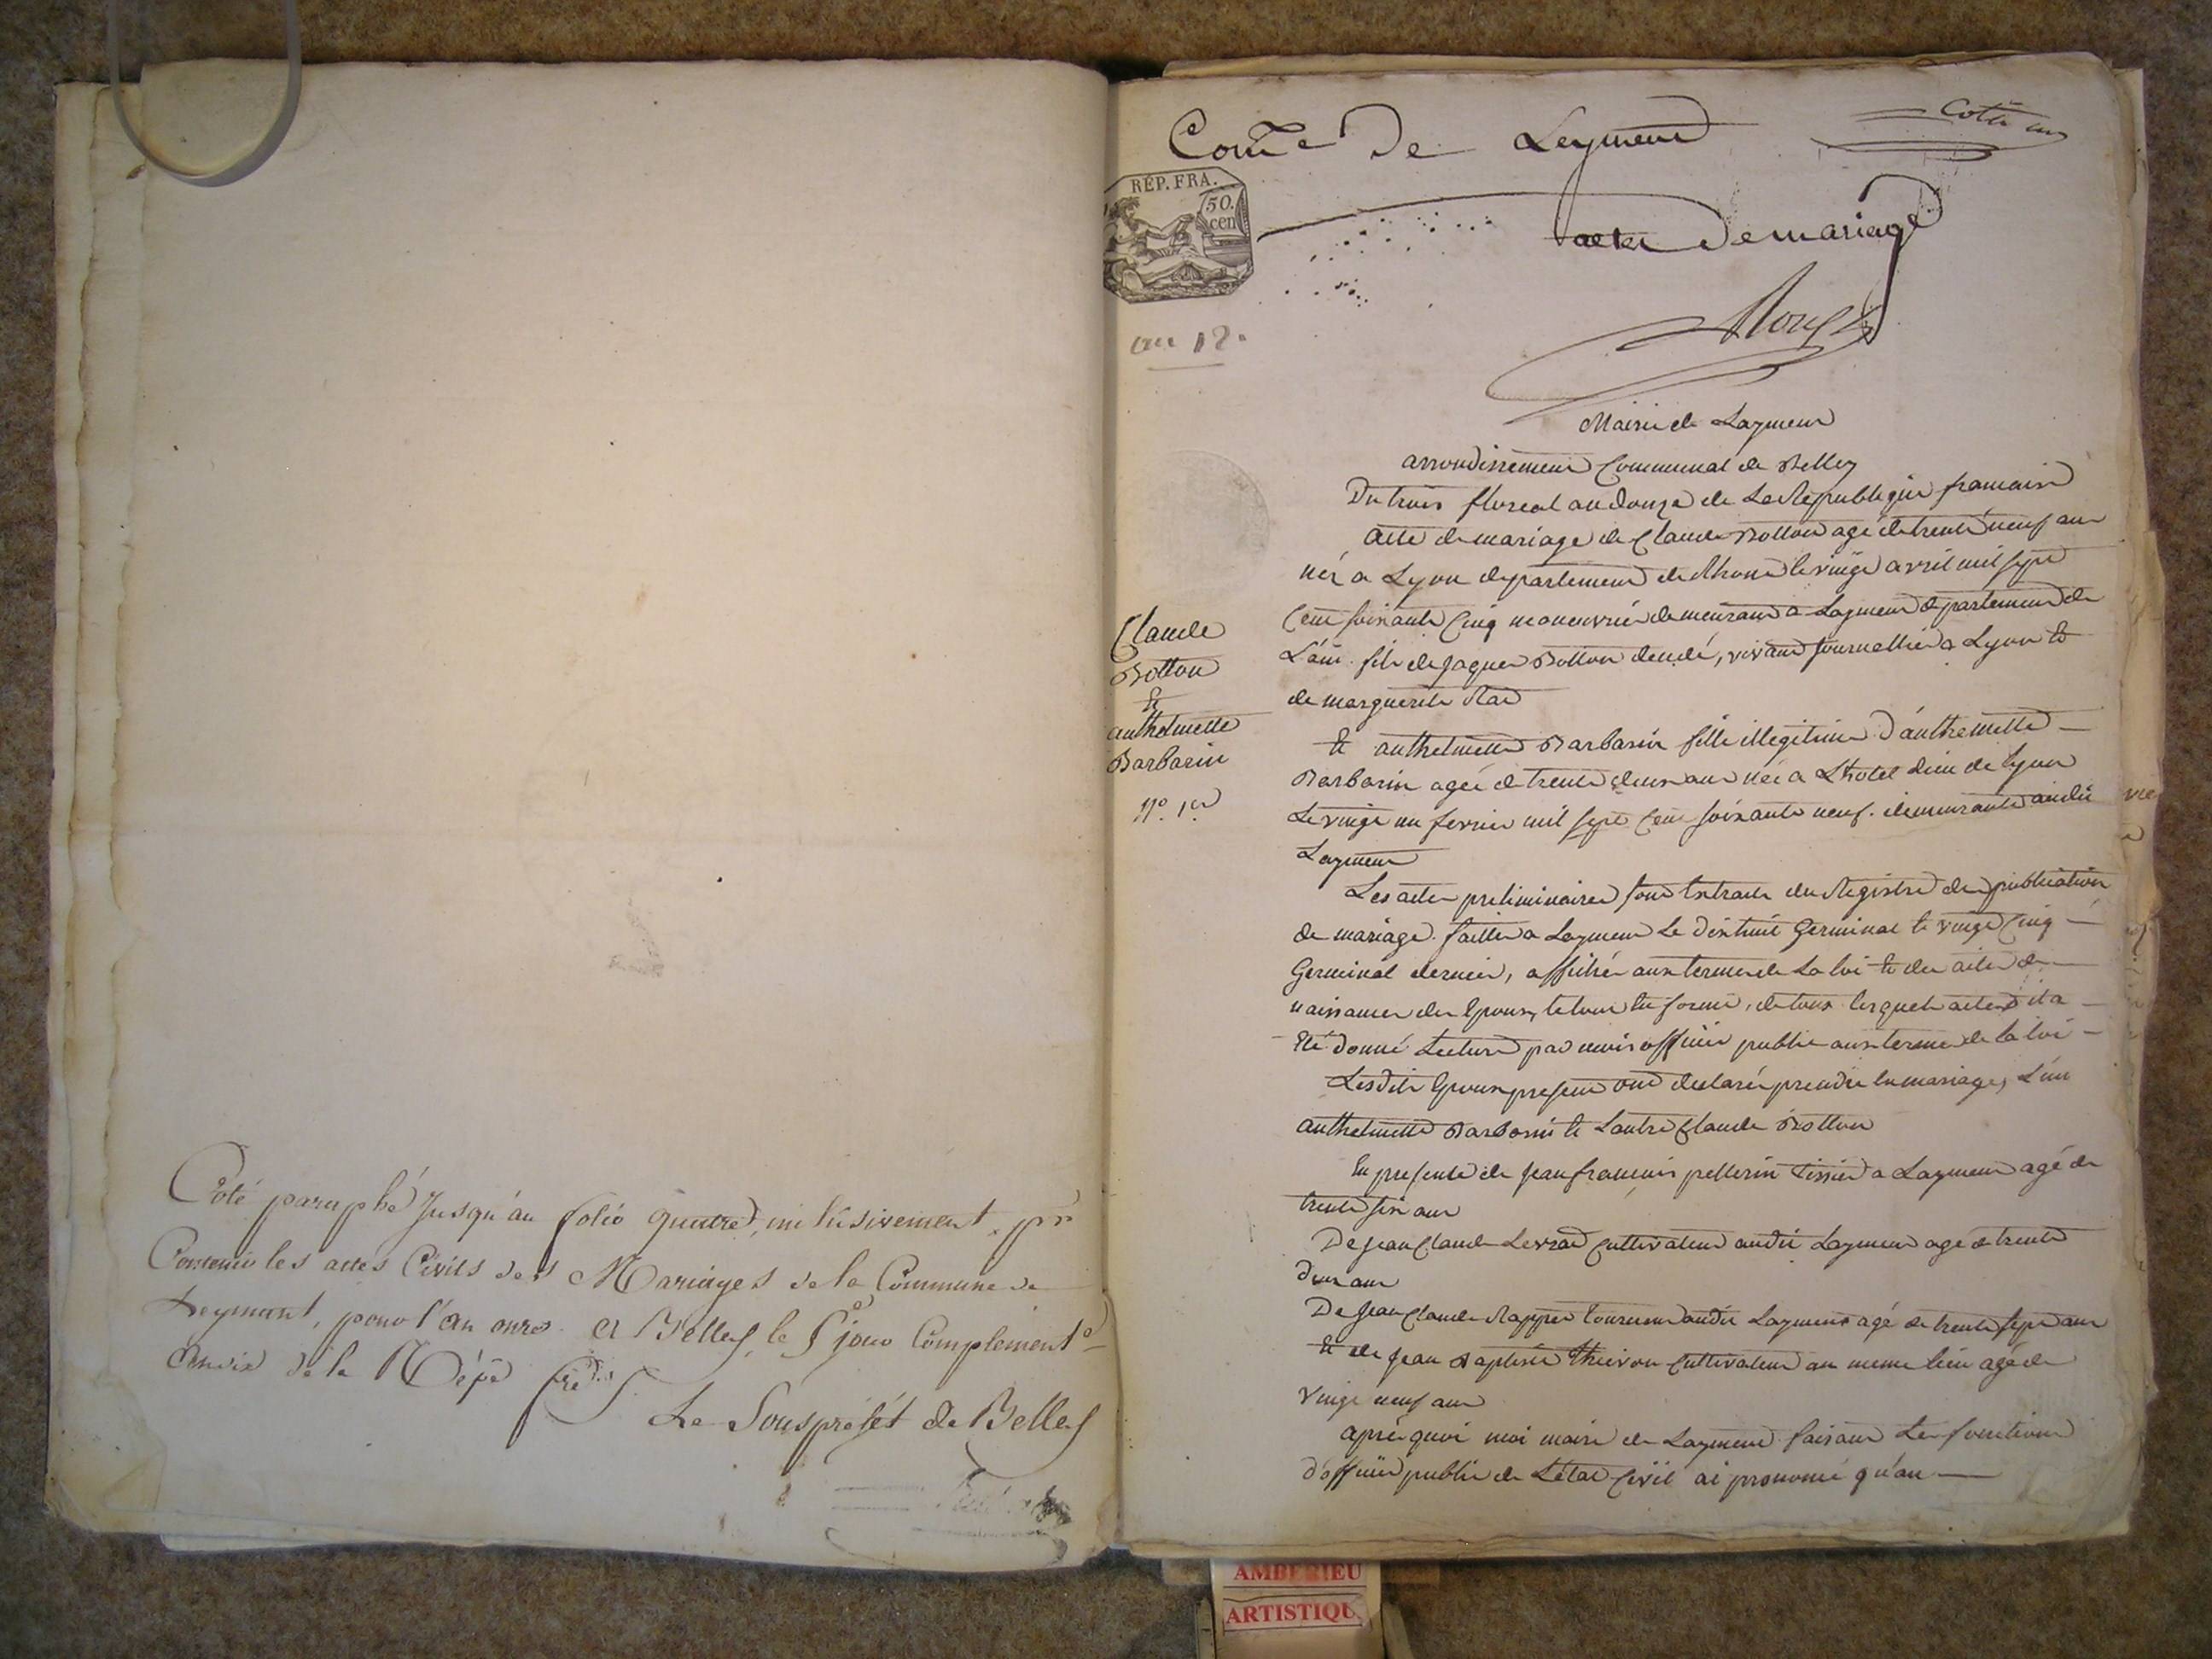 Coté paraphé Jusqu'au folio quatre, inclusivement pr
Contenir les actes Civils des Mariages de la Commune de
Leymant, pour l'an onze. A Belley, le 5e jour Complementre
an dix de la Répe fse
Le Sousprefét de Belley
Come De Leyment
Cotté un
RÉP. FRA.
50.
cen
actes De mariage
an 12.
Mairie de Laymen
arrondissement Communal de Belley
Du trois floreal an douze de La Republique francaise
Acte de mariage de Claude Botton agé de trente neuf ans
néz a Lyon departement du Rhone le vingt avril mil sept
Cent soixante Cinq manouvrier demeurant a Laymen departement de
L'ain. fils de Jaques Botton decédé, vivant journallier a Lyon et
de marguerite
Claude
Botton
et
anthelmette
Barbarin
No. 1er
et anthelmette Barbarin fille illegitime D'anthelmette
Barbarin agée de trente deux ans née a L'hotel dieu de Lyon
Le vingt un fevrier mil sept Cent soixante neuf. demeurante audit
Laymen
Les actes preliminaires sont Extraits du Registre des publication
de mariage. faittes a Laymen Le dixhuit Germinal et vingt Cinq
Germinal dernier, affichés aux termes de La loi et des actes de
naissances des Epoux, le tout en forme, de tous lesquels actes il a
été donné Lecture par moi officier public aux termes de la loi
Lesdits Epoux present ont declaré prendre en mariage, L'un
anthelmette Barbarin et Lautre Claude Botton
En presence de Jean francois pellerin tissier a Laymen agé de
trente six ans
De Jean Claude Levrat Cultivateur audit Laymen agé de trente
deux ans
De Jean Claude Rappet tourneur audit Laymen agé de trente sept ans
et de Jean Baptiste thievon Cultivateur au meme lieu agé de
vingt neuf ans
après quoi moi maire de Laymen faisant Les fonctions
d'officier public de L'état Civil ai prononcé qu'au
AMBERIEU
ARTISTIQU